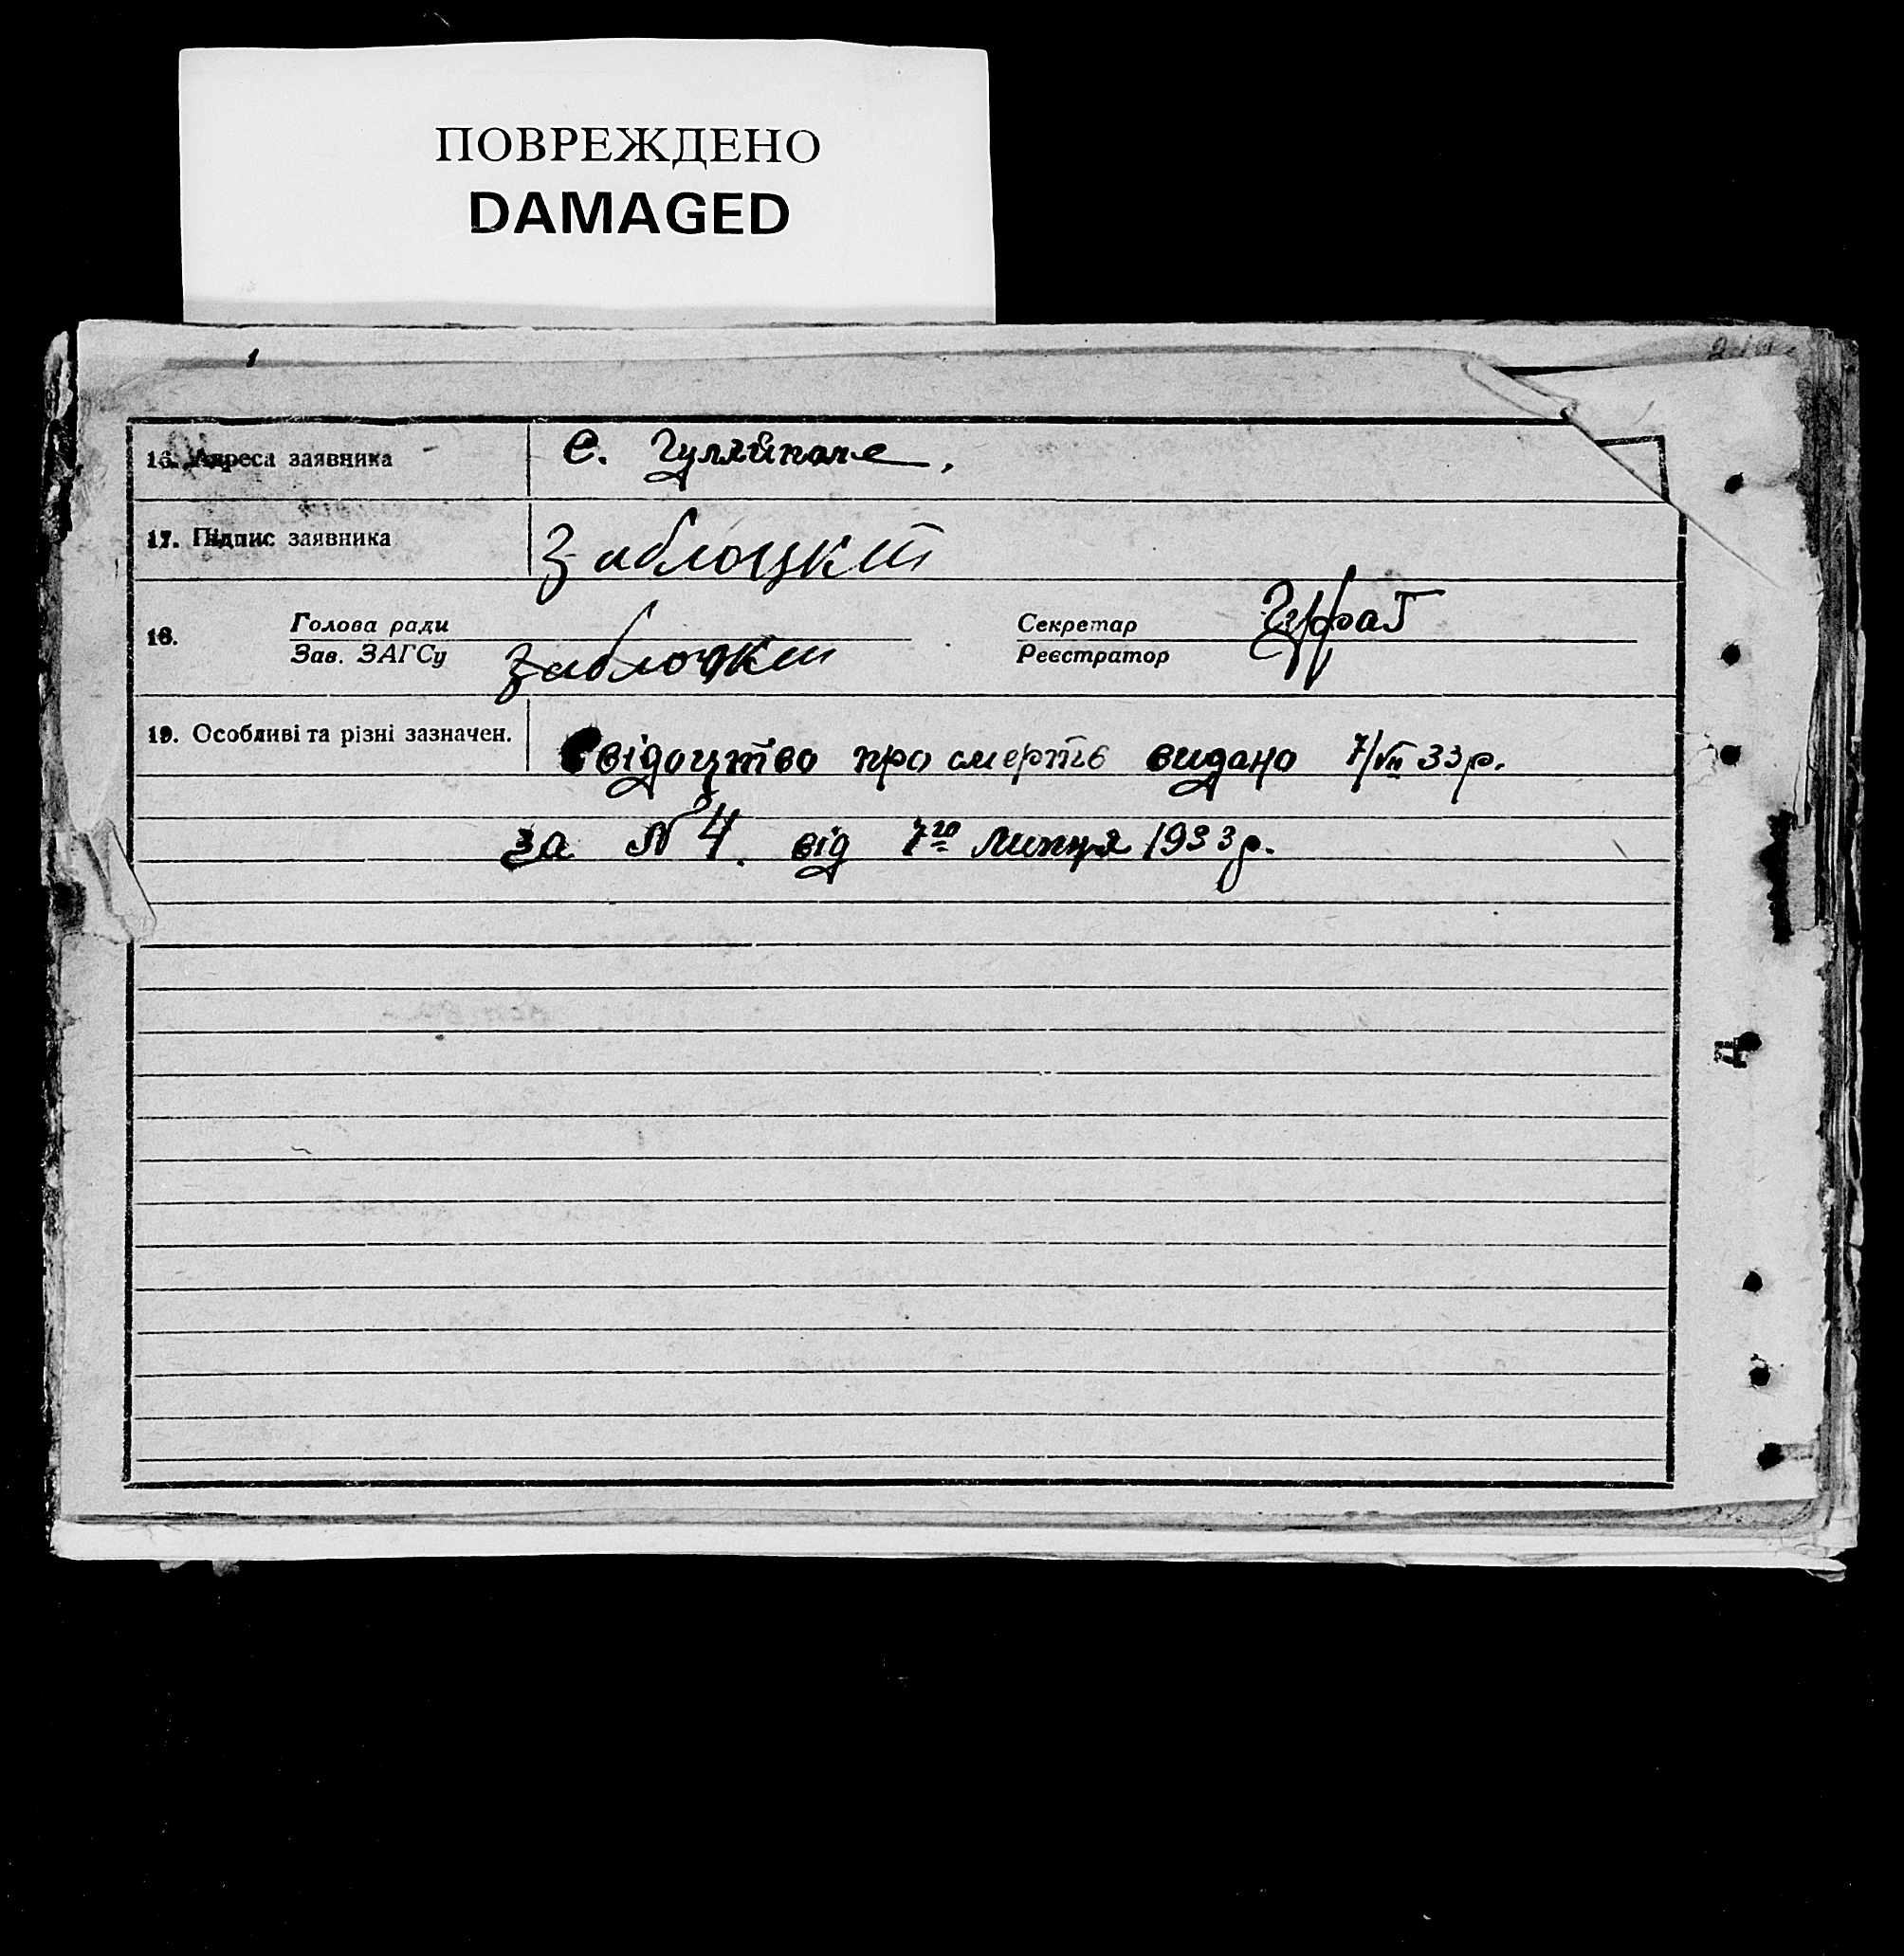 ПОВРЕЖДЕНО
DAMAGED
16. Адреса заявника с. Гуляйполе,
17. Підпис заявника Заблоцкий
18. Голова ради Зав. ЗАГСу Заблоцкий Секретар Реєстратор
19. Особливі та різні зазначен. Свідоцтво про смерть видано 7/VII 33 р.
за № 4. від 7го Липня 1933 р.